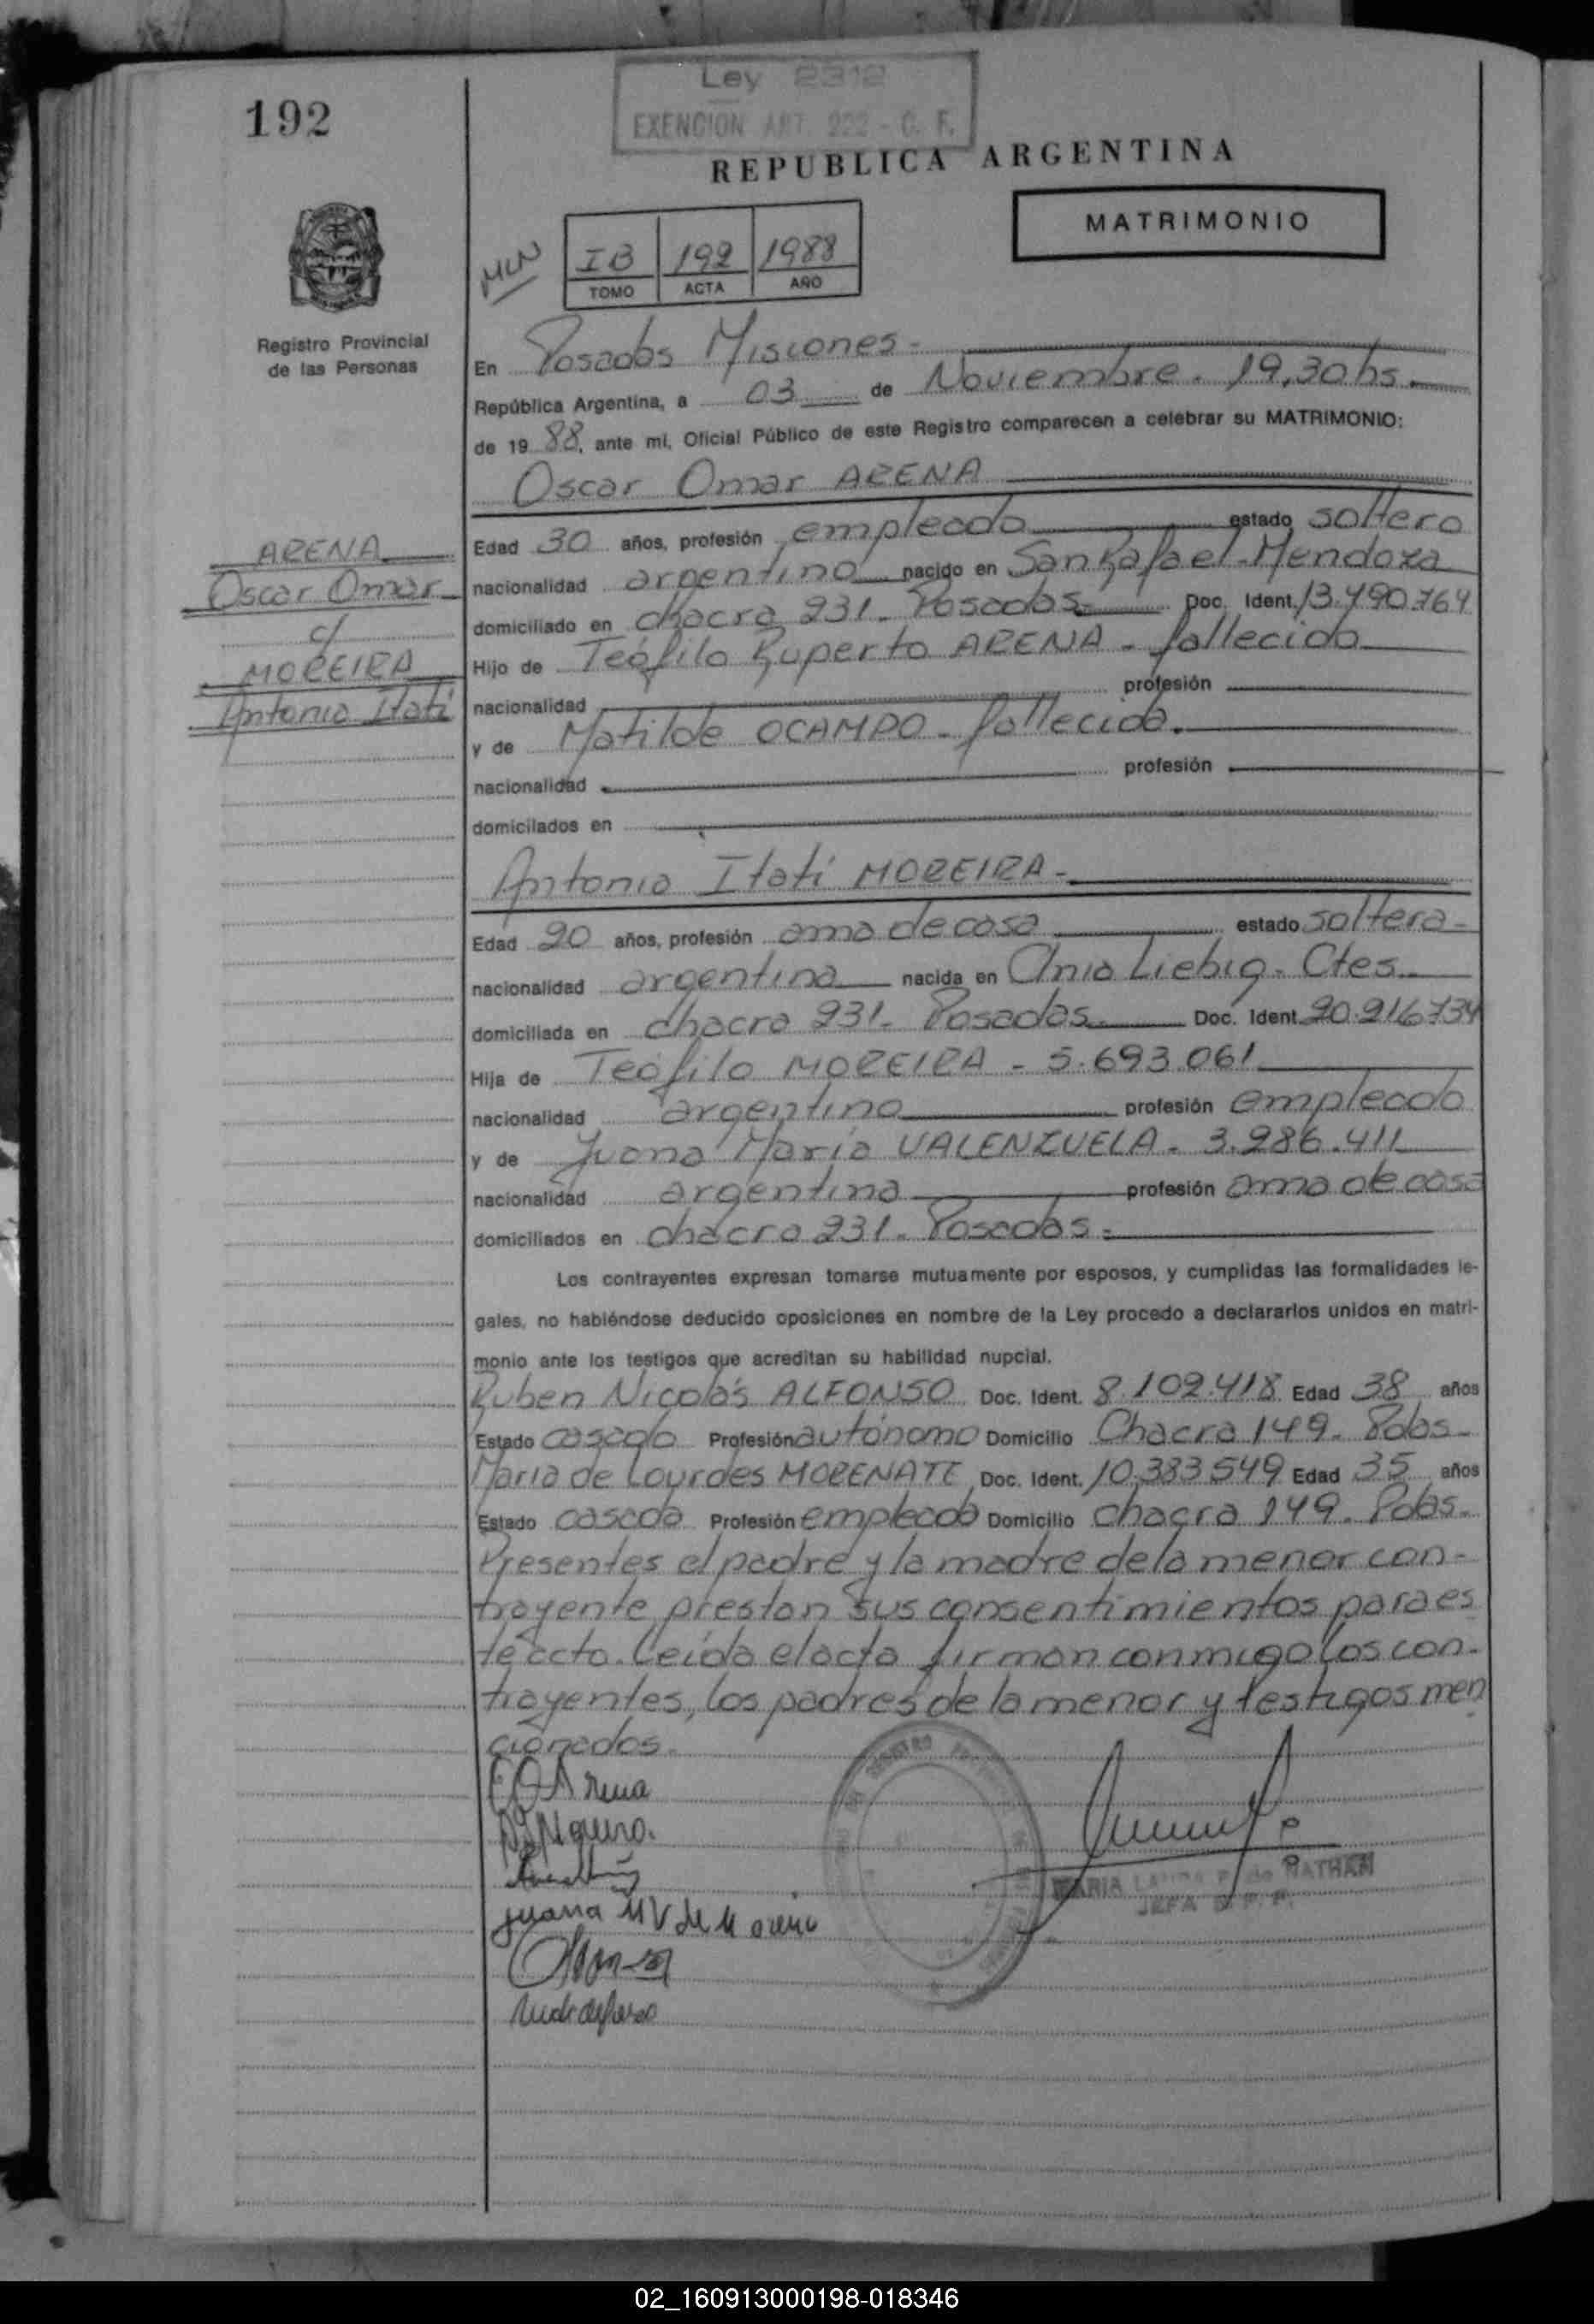 192
Ley 2312
EXENCION ART. 222 - C. F.
REPUBLICA ARGENTINA
MATRIMONIO
MLN
IB 192 1988
TOMO ACTA AÑO
Registro Provincial
de las Personas
En Posadas Misiones.
República Argentina, a 03 de Noviembre. 19,30 hs.
de 19 88, ante mí, Oficial Público de este Registro comparecen a celebrar su MATRIMONIO:
Oscar Omar ARENA
ARENA
Oscar Omar
c/
MOREIRA
Antonia Itatí
Edad 30 años, profesión empleado estado soltero
nacionalidad argentino nacido en San Rafael-Mendoza
domiciliado en chacra 231. Posadas Doc. Ident. 13.490.764
Hijo de Teófilo Ruperto ARENA - fallecido
nacionalidad profesión
y de Matilde OCAMPO - fallecida.
nacionalidad profesión
domicilados en
Antonia Itatí MOREIRA-
Edad 20 años, profesión ama de casa estado soltera-
nacionalidad argentina nacida en Cnia Liebig. Ctes.
domiciliada en chacra 231- Posadas. Doc. Ident. 20.216.734
Hija de Teófilo MOREIRA - 5.693.061
nacionalidad argentino profesión empleado
y de Juana María VALENZUELA - 3.286.411
nacionalidad argentina profesión ama de casa
domiciliados en chacra 231. Posadas.
Los contrayentes expresan tomarse mutuamente por esposos, y cumplidas las formalidades le-
gales, no habiéndose deducido oposiciones en nombre de la Ley procedo a declararlos unidos en matri-
monio ante los testigos que acreditan su habilidad nupcial.
Ruben Nicolás ALFONSO Doc. Ident. 8.102.418 Edad 38 años
Estado casado Profesión autónomo Domicilio Chacra 149. Pdas.
María de Lourdes MORENATE Doc. Ident. 10.383.549 Edad 35 años
Estado casada Profesión empleada Domicilio chacra 149. Pdas.
Presentes el padre y la madre de la menor con-
trayente prestan sus consentimientos para es
te acto. Leída el acta firman conmigo los con-
trayentes, los padres de la menor y testigos men
cionados.
Arena
juana M V de Moreira
MARIA NATHAN
JEFA
02_160913000198-018346